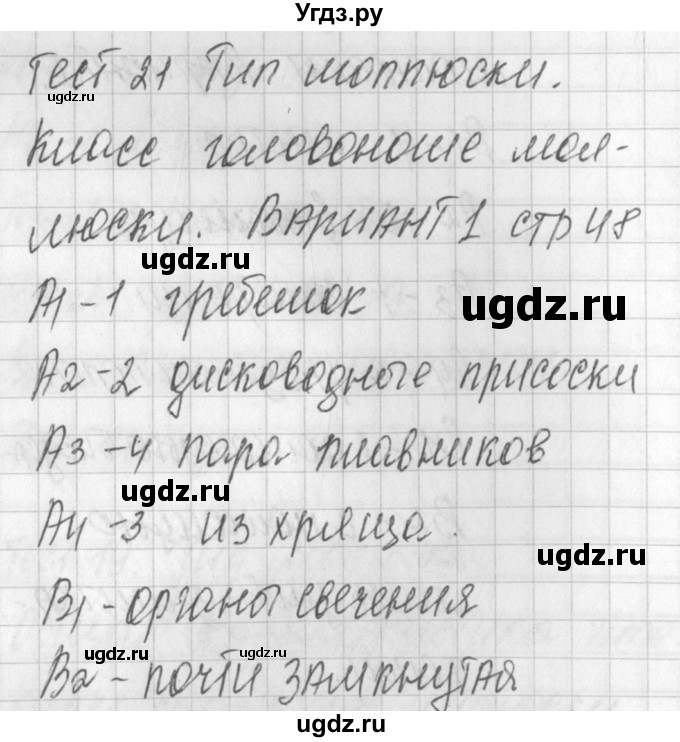 Угдз.ру
Тест 21 Тип моллюски.
ugdz.ru
Класс головоногие мол-
люски. ВАРИАНТ 1 стр 48
ugdz.ru
А1-1 гребешок
ugdz.ru
А2-2 дисководные присоски
А3-4 пара плавников
ugdz.ru
А4-3 из хряща.
ugdz.ru
В1-органы свечения
ugdz.ru
ugdz.ru
В2-почти ЗАМКНУТАЯ
ugdz.ru